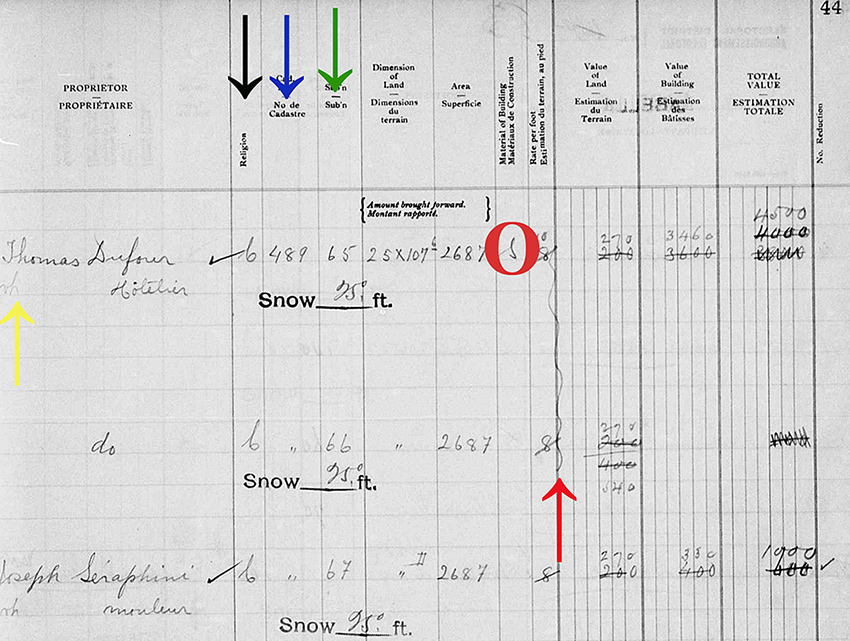 44
PROPRIETOR
—
PROPRIÉTAIRE
Religion
Cad.
—
No de
Cadastre
Sub'n
—
Sub'n
Dimension
of
Land
—
Dimensions
du
terrain
Area
—
Superficie
Material of Building
Matériaux de Construction
Rate per foot
Estimation du terrain, au pied
Value
of
Land
—
Estimation
du
Terrain
Value
of
Building
—
Estimation
des
Bâtisses
TOTAL
VALUE
—
ESTIMATION
TOTALE
No. Reduction
Amount brought forward.
Montant rapporté.
4500
270 3460 4000
Thomas Dufour ✓ C 489 65 25X107⁶ 2687 S 8 200 3600
Hôtelier
Snow 95⁰ ft.
270
do C " 66 " 2687 8 200
400
540
Snow 95⁰ ft.
270 350 1900
Joseph Séraphini ✓ C " 67 " II 2687 8 200 400 ✓
mouleur
Snow 95⁰ ft.